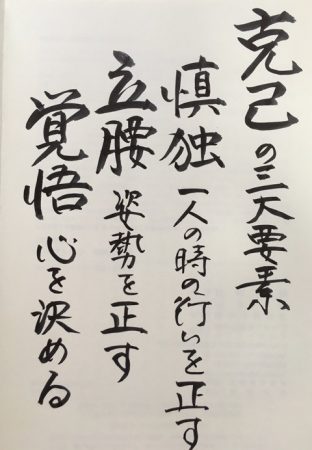 克己の三大要素
慎独 一人の時の行いを正す
立腰 姿勢を正す
覚悟 心を決める